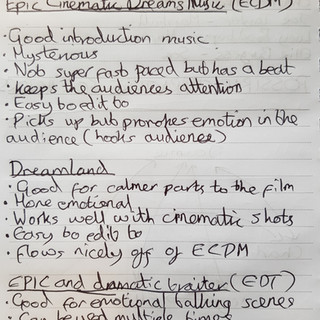 Epic Cinematic Dreams Music (ECDM)
· Good introduction music
· Mysterious
· Not super fast paced but has a beat
· Keeps the audiences attention
· Easy to edit to
· Picks up but provokes emotion in the
audience (hooks audience)
Dreamland
· Good for calmer parts to the film
· More emotional
· Works well with cinematic shots
· Easy to edit to
· Flows nicely off of ECDM
EPIC and dramatic trailer (EDT)
· Good for emotional talking scenes
· Can be used multiple times